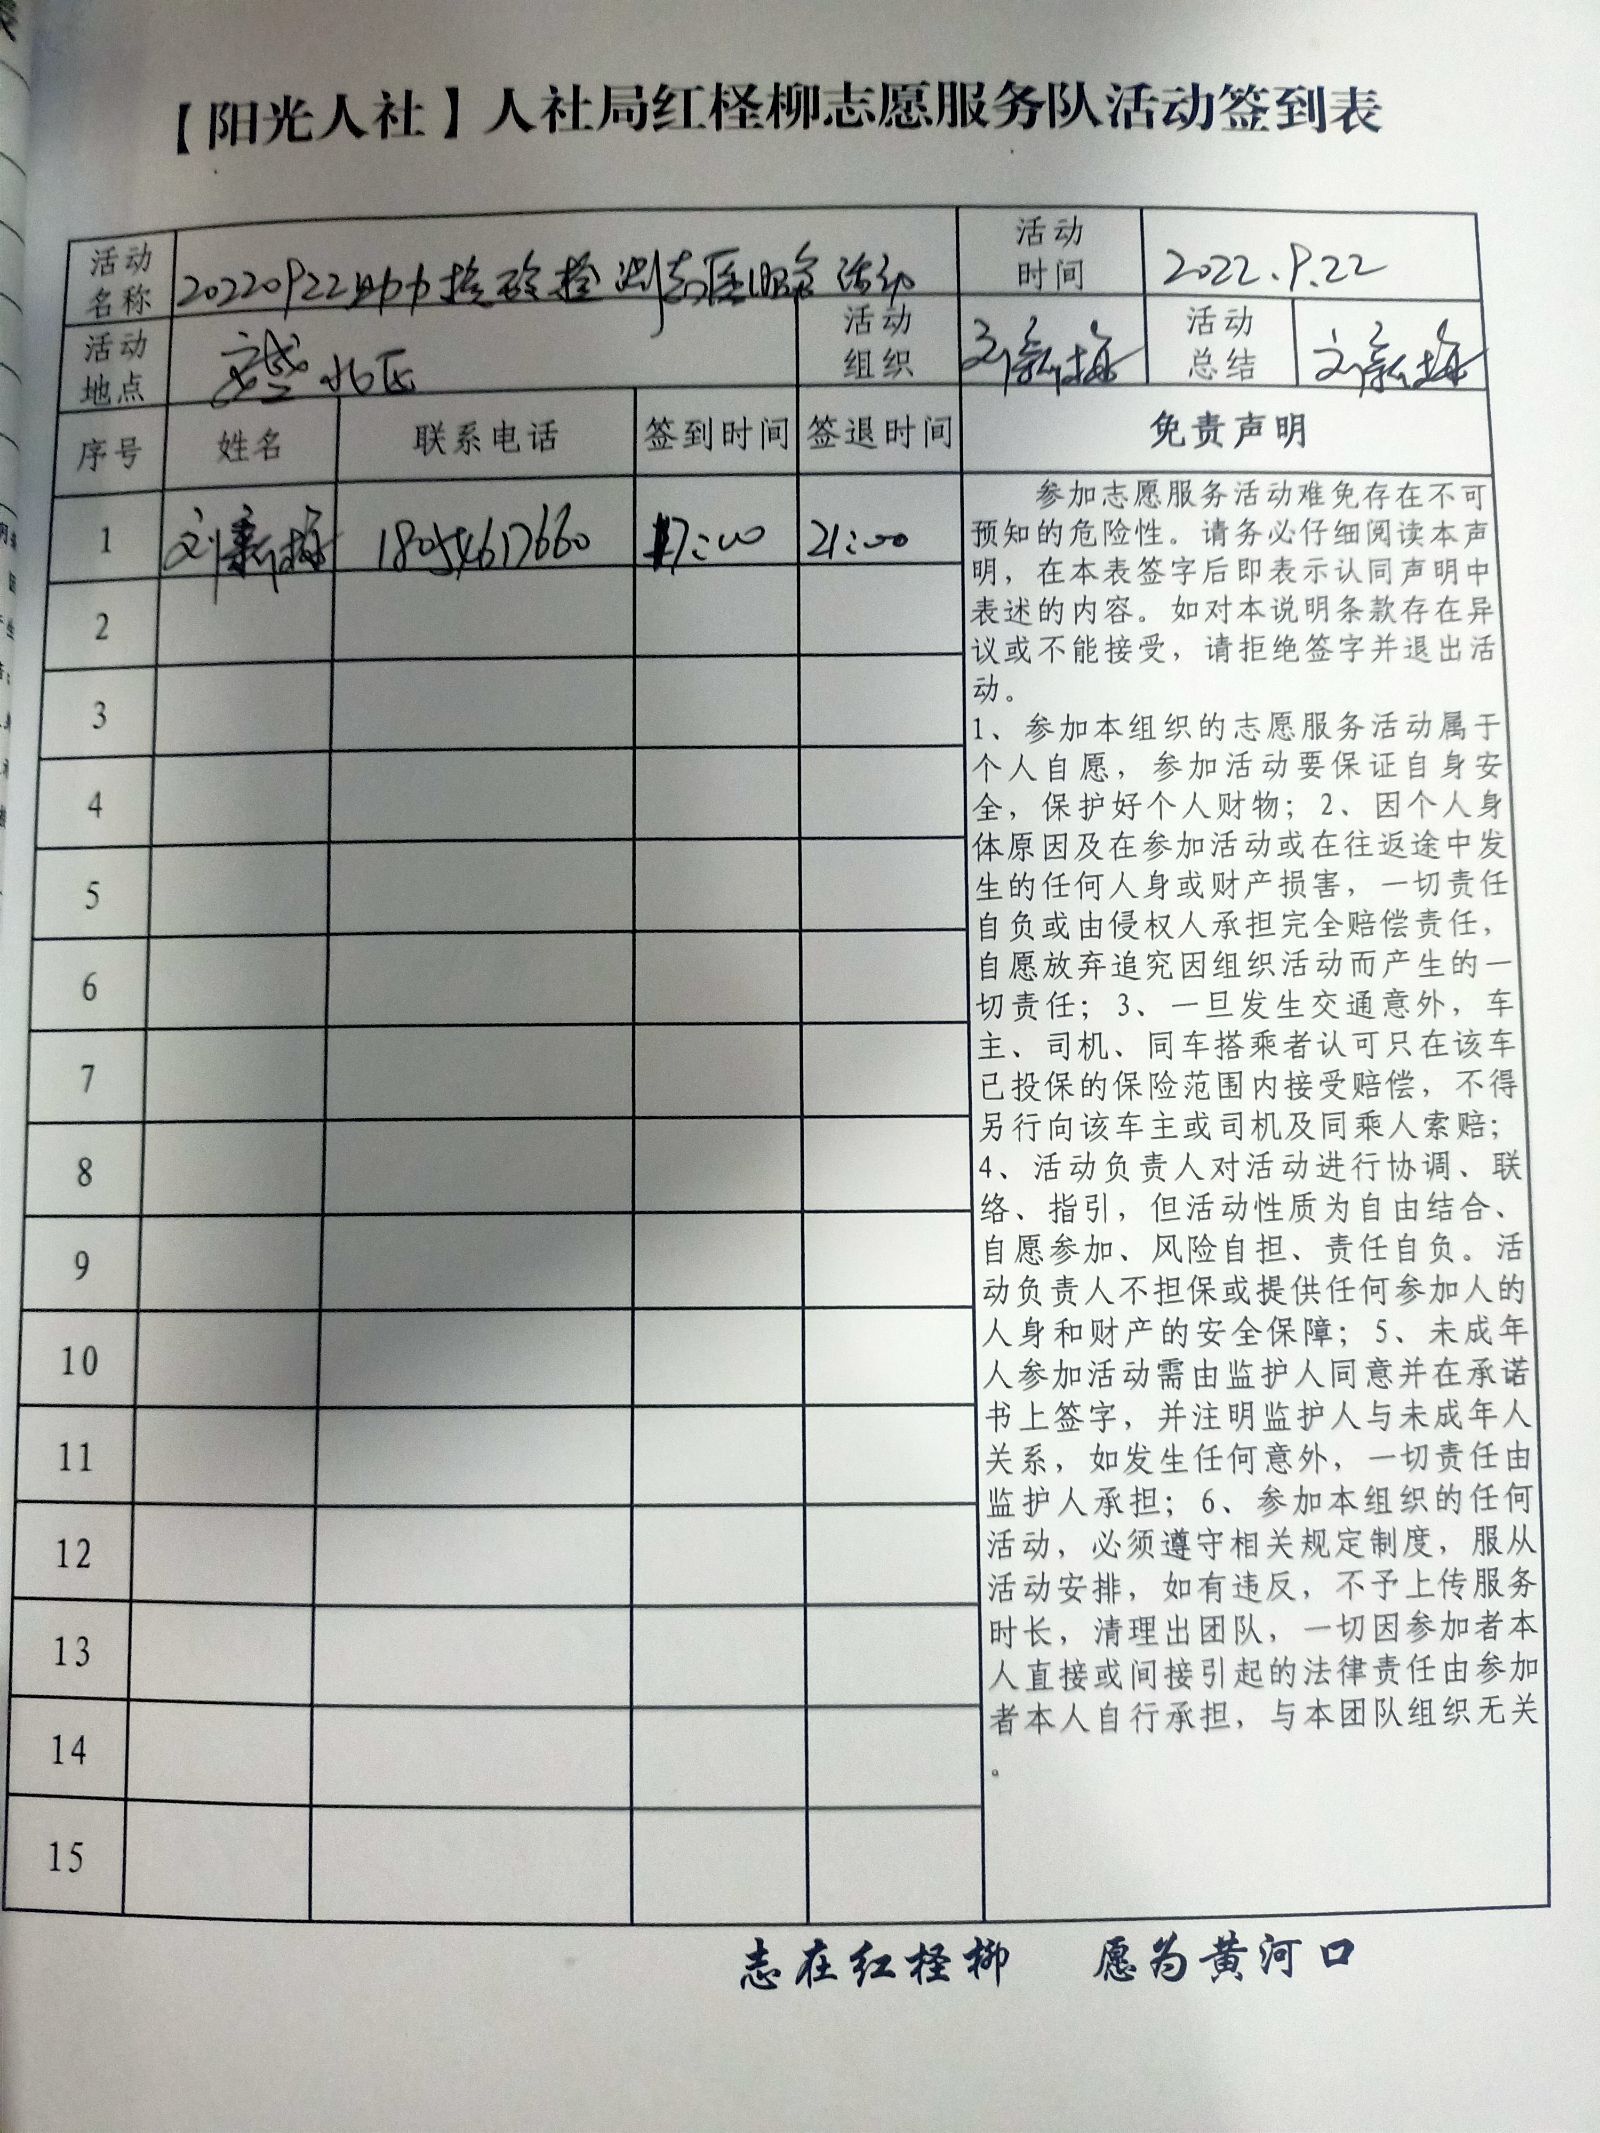 【阳光人社】人社局红柽柳志愿服务队活动签到表
活动名称 20220922助力核酸检测志愿服务活动 活动时间 2022.9.22
活动地点 北区 活动组织 刘新梅 活动总结 刘新梅
序号 姓名 联系电话 签到时间 签退时间 免责声明
1 刘新梅 18054617660 17:00 21:00
2
3
4
5
6
7
8
9
10
11
12
13
14
15
参加志愿服务活动难免存在不可
预知的危险性。请务必仔细阅读本声
明，在本表签字后即表示认同声明中
表述的内容。如对本说明条款存在异
议或不能接受，请拒绝签字并退出活
动。
1、参加本组织的志愿服务活动属于
个人自愿，参加活动要保证自身安
全，保护好个人财物；2、因个人身
体原因及在参加活动或在往返途中发
生的任何人身或财产损害，一切责任
自负或由侵权人承担完全赔偿责任，
自愿放弃追究因组织活动而产生的一
切责任；3、一旦发生交通意外，车
主、司机、同车搭乘者认可只在该车
已投保的保险范围内接受赔偿，不得
另行向该车主或司机及同乘人索赔；
4、活动负责人对活动进行协调、联
络、指引，但活动性质为自由结合、
自愿参加、风险自担、责任自负。活
动负责人不担保或提供任何参加人的
人身和财产的安全保障；5、未成年
人参加活动需由监护人同意并在承诺
书上签字，并注明监护人与未成年人
关系，如发生任何意外，一切责任由
监护人承担；6、参加本组织的任何
活动，必须遵守相关规定制度，服从
活动安排，如有违反，不予上传服务
时长，清理出团队，一切因参加者本
人直接或间接引起的法律责任由参加
者本人自行承担，与本团队组织无关
。
志在红柽柳 愿为黄河口